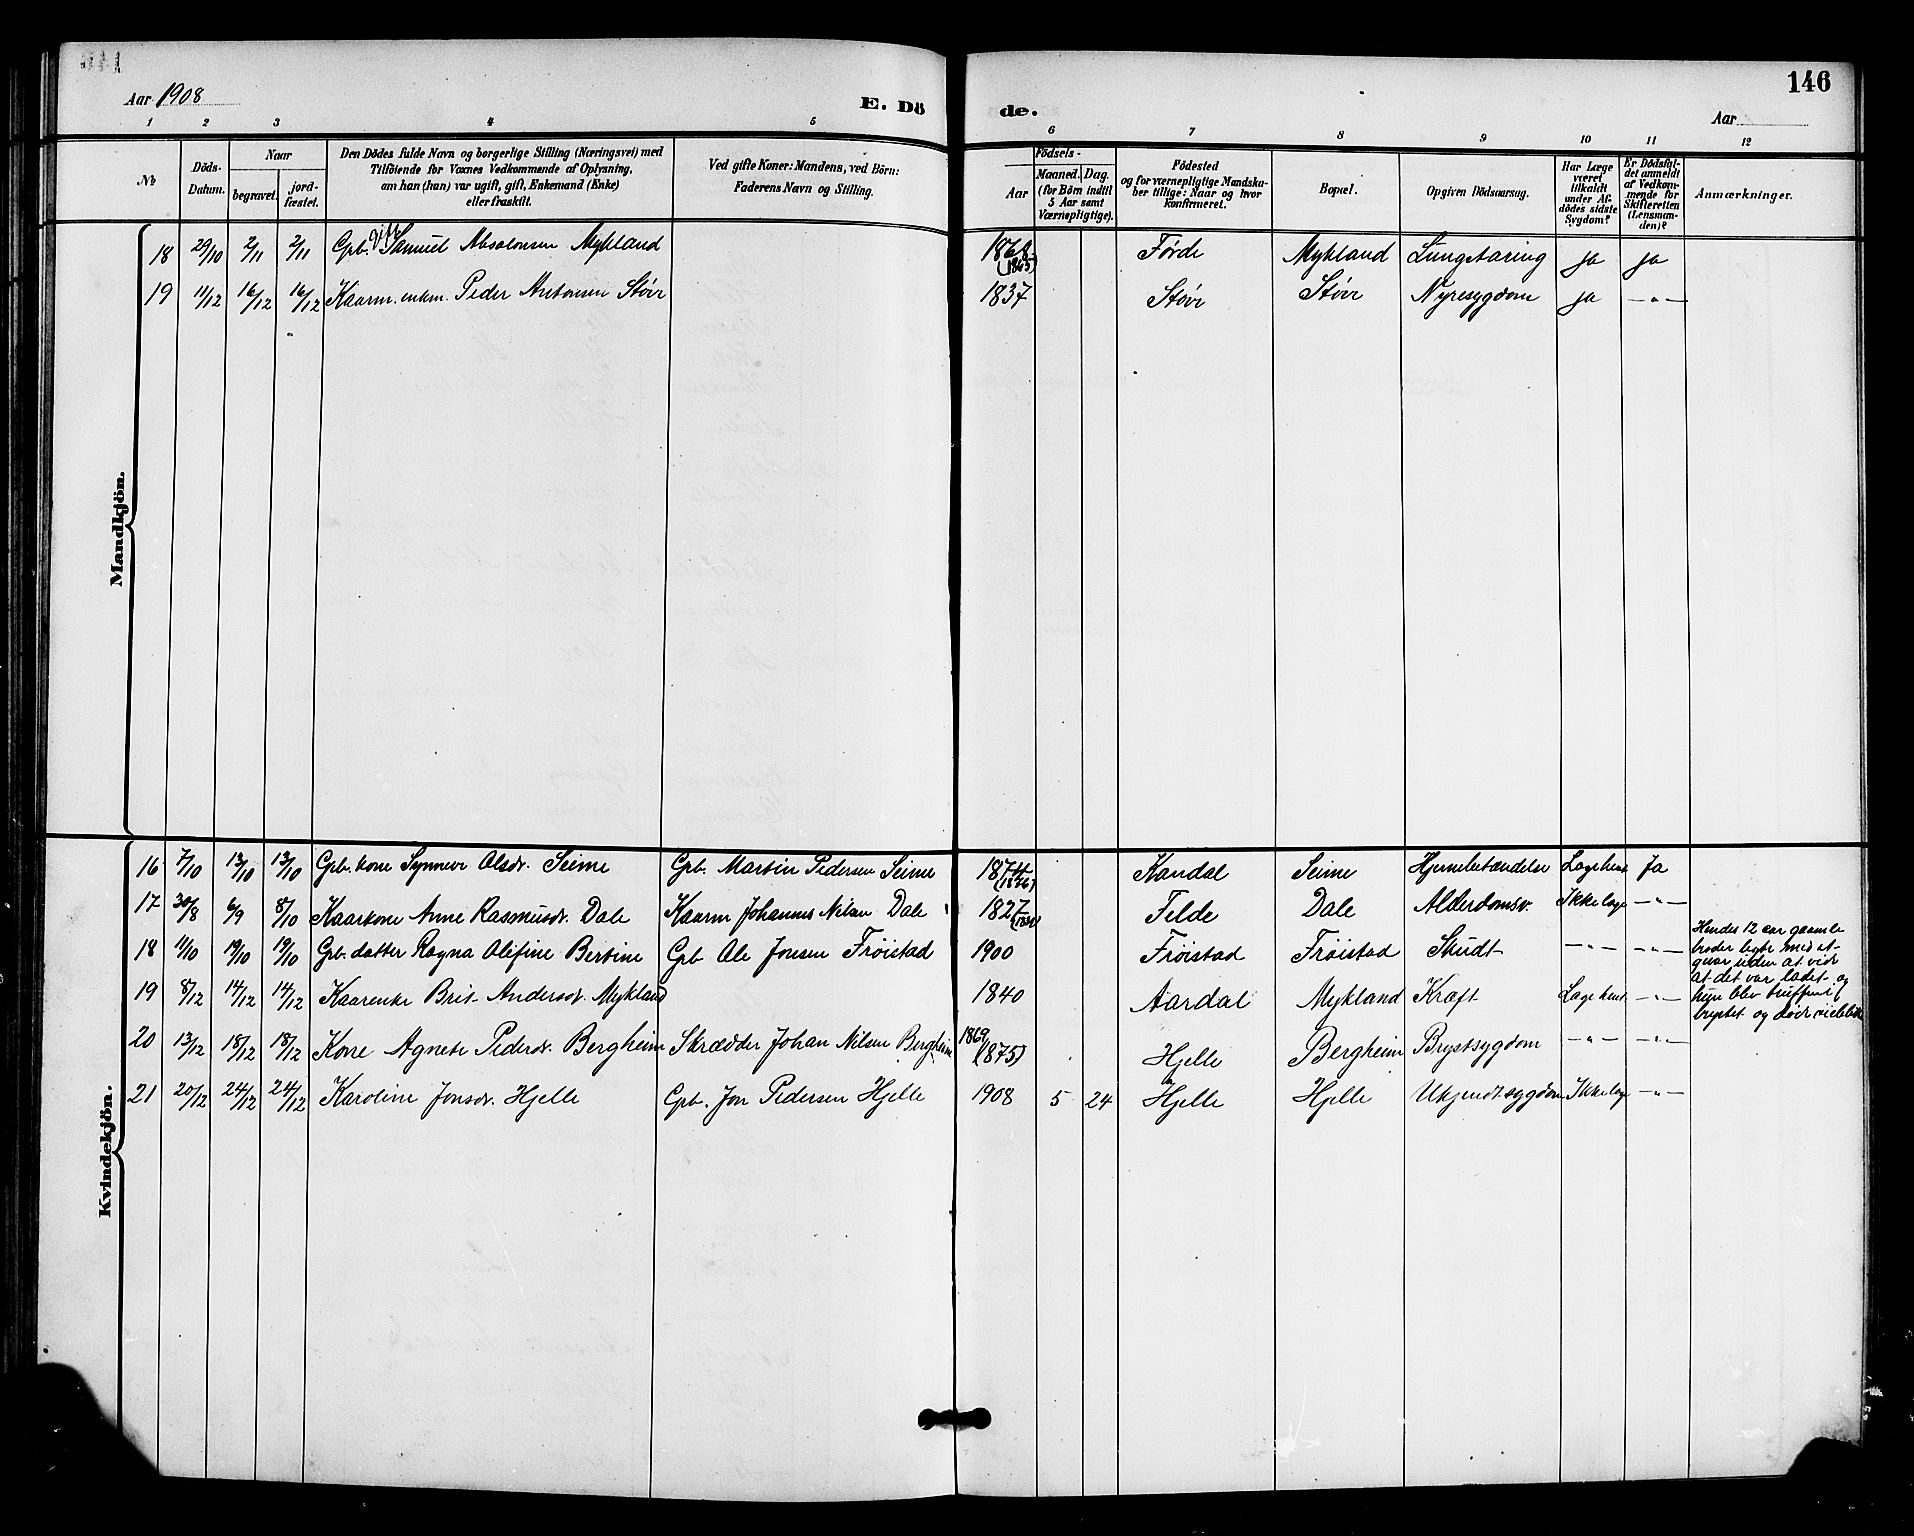 146
Aar 1908
E. Dö
de.
Aar
1 2 3 4 5 6 7 8 9 10 11 12
№
Döds-
Datum.
Naar
begravet.
jord-
fæstet.
Den Dödes fulde Navn og borgerlige Stilling (Næringsvei) med
Tilföiende for Voxnes Vedkommende af Oplysning,
om han (hun) var ugift, gift, Enkemand (Enke)
eller fraskilt.
Ved gifte Koner: Mandens, ved Börn:
Faderens Navn og Stilling.
Födsels-
Aar
Maaned. Dag.
(for Börn indtil
5 Aar samt
Værnepligtige).
Födested
og for værnepligtige Mandska-
ber tillige: Naar og hvor
konfirmeret.
Bopæl.
Opgiven Dödsaarsag.
Har Læge
været
tilkaldt
under Af-
dödes sidste
Sygdom?
Er Dödsfal-
det anmeldt
af Vedkom-
mende for
Skifteretten
(Lensman-
den)?
Anmærkninger.
Mandkjön.
18 29/10 2/11 2/11 Gpb. Samuel Absalonsen Mykland 1868 (1865) Førde Mykland Lungetæring ja ja
19 11/12 16/12 16/12 Kaarm. enkm. Peder Antonsen Støve 1837 Støve Støve Nyresygdom ja —"—
Kvindekjön.
16 7/10 13/10 13/10 Gpb. kone Synneve Olsdr. Seime Gpb. Martin Pedersen Seime 1874 (1876) Kandal Seime Hjernebetændelse Læge hent Ja
17 30/8 6/9 8/10 Kaarkone Anne Rasmusdr. Dale Kaarm Johannes Nilsen Dale 1827 Felde Dale Alderdomsv. Ikke læge —"—
18 11/10 19/10 19/10 Gpb. datter Ragna Olefine Bertine Gpb Ole Jonsen Frøistad 1900 Frøistad Frøistad Skudt —"— —"—
Hendes 12 aar gamle
broder legte med et
gevær uden at vide
at det var ladet og
hun blev truffen i
brystet og døde
19 8/12 14/12 14/12 Kaarenke Brit Andersdr. Mykland 1840 Aardal Mykland Kræft Læge hent —"—
20 13/12 18/12 18/12 Kone Agnete Pedersdr. Bergheim Skrædder Johan Nilsen Bergheim 1869 (1875) Hjelle Bergheim Brystsygdom —"— —"—
21 20/12 24/12 24/12 Karoline Jonsdr. Hjelle Gpb. Jon Pedersen Hjelle 1908 5 24 Hjelle Hjelle Ukjendt sygdom Ikke læg —"—